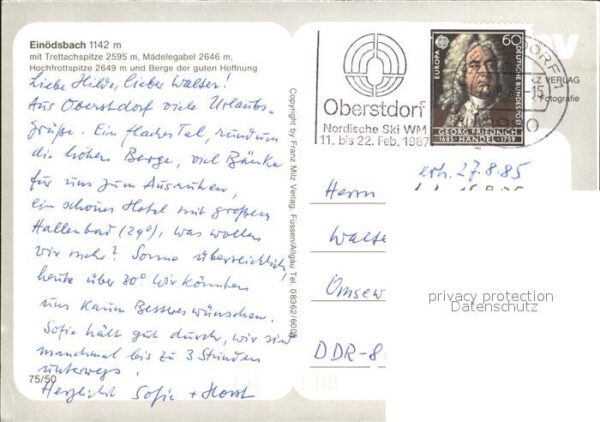 Einödsbach 1142 m
mit Trettachspitze 2595 m, Mädelegabel 2646 m,
Hochfrottspitze 2649 m und Berge der guten Hoffnung
Liebe Hilde, lieber Walter!
Aus Oberstdorf viele Urlaubs-
grüße. Ein flaches Tal, rundum
die hohen Berge, viel Bänke
für uns zum Ausruhen,
ein schönes Hotel mit großem
Hallenbad (29°), was wollen
wir mehr? Sonne überreichlich,
heute über 30° Wir könnten
uns kaum Besseres wünschen.
Sofie hält gut durch, wir sind
manchmal bis zu 3 Stunden
unterwegs!
Herzlichst Sofie + Horst
75/50
Copyright by Franz Milz Verlag, Füssen/Allgäu Tel. 08362/6008
Oberstdorf
Nordische Ski WM
11. bis 22. Feb. 1987
EUROPA
60
DEUTSCHE BUNDESPOST
GEORG FRIEDRICH
1685 HÄNDEL 1759
LZ VERLAG
Fotografie
erh. 27.8.85
Herrn
Walte
Omsew
DDR-8
privacy protection
Datenschutz